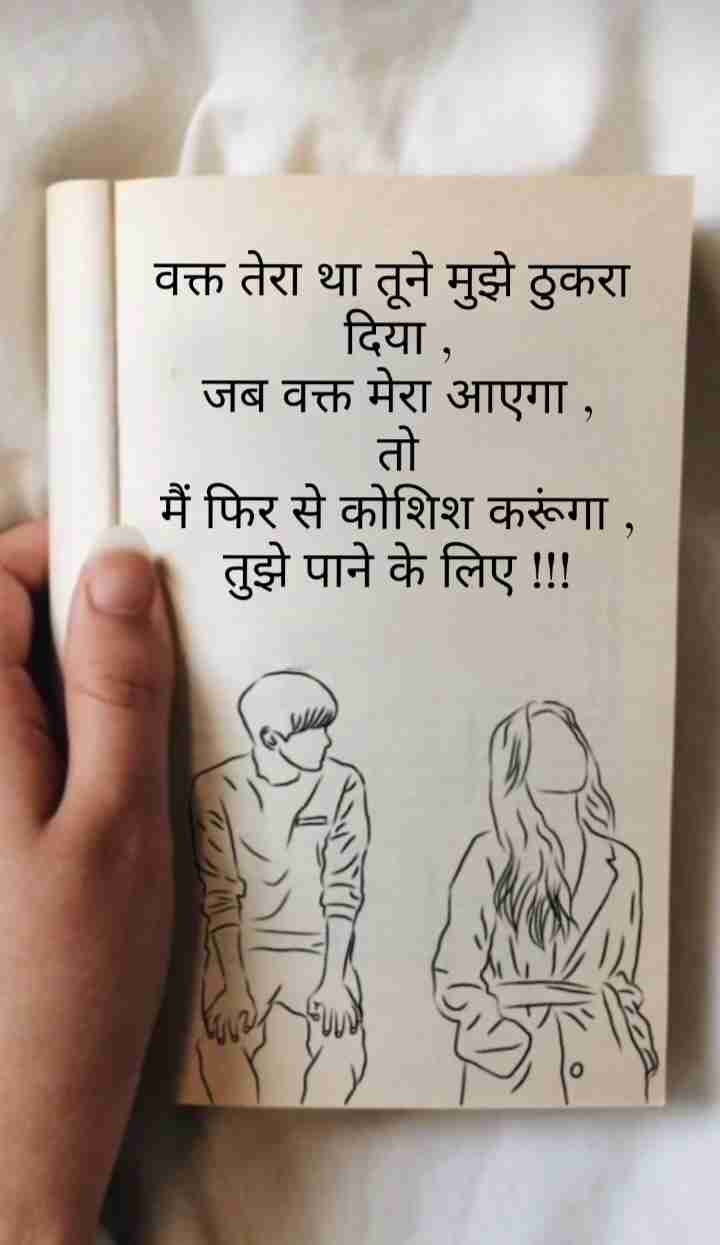 वक्त तेरा था तूने मुझे ठुकरा
दिया ,
जब वक्त मेरा आएगा ,
तो
मैं फिर से कोशिश करूंगा ,
तुझे पाने के लिए !!!